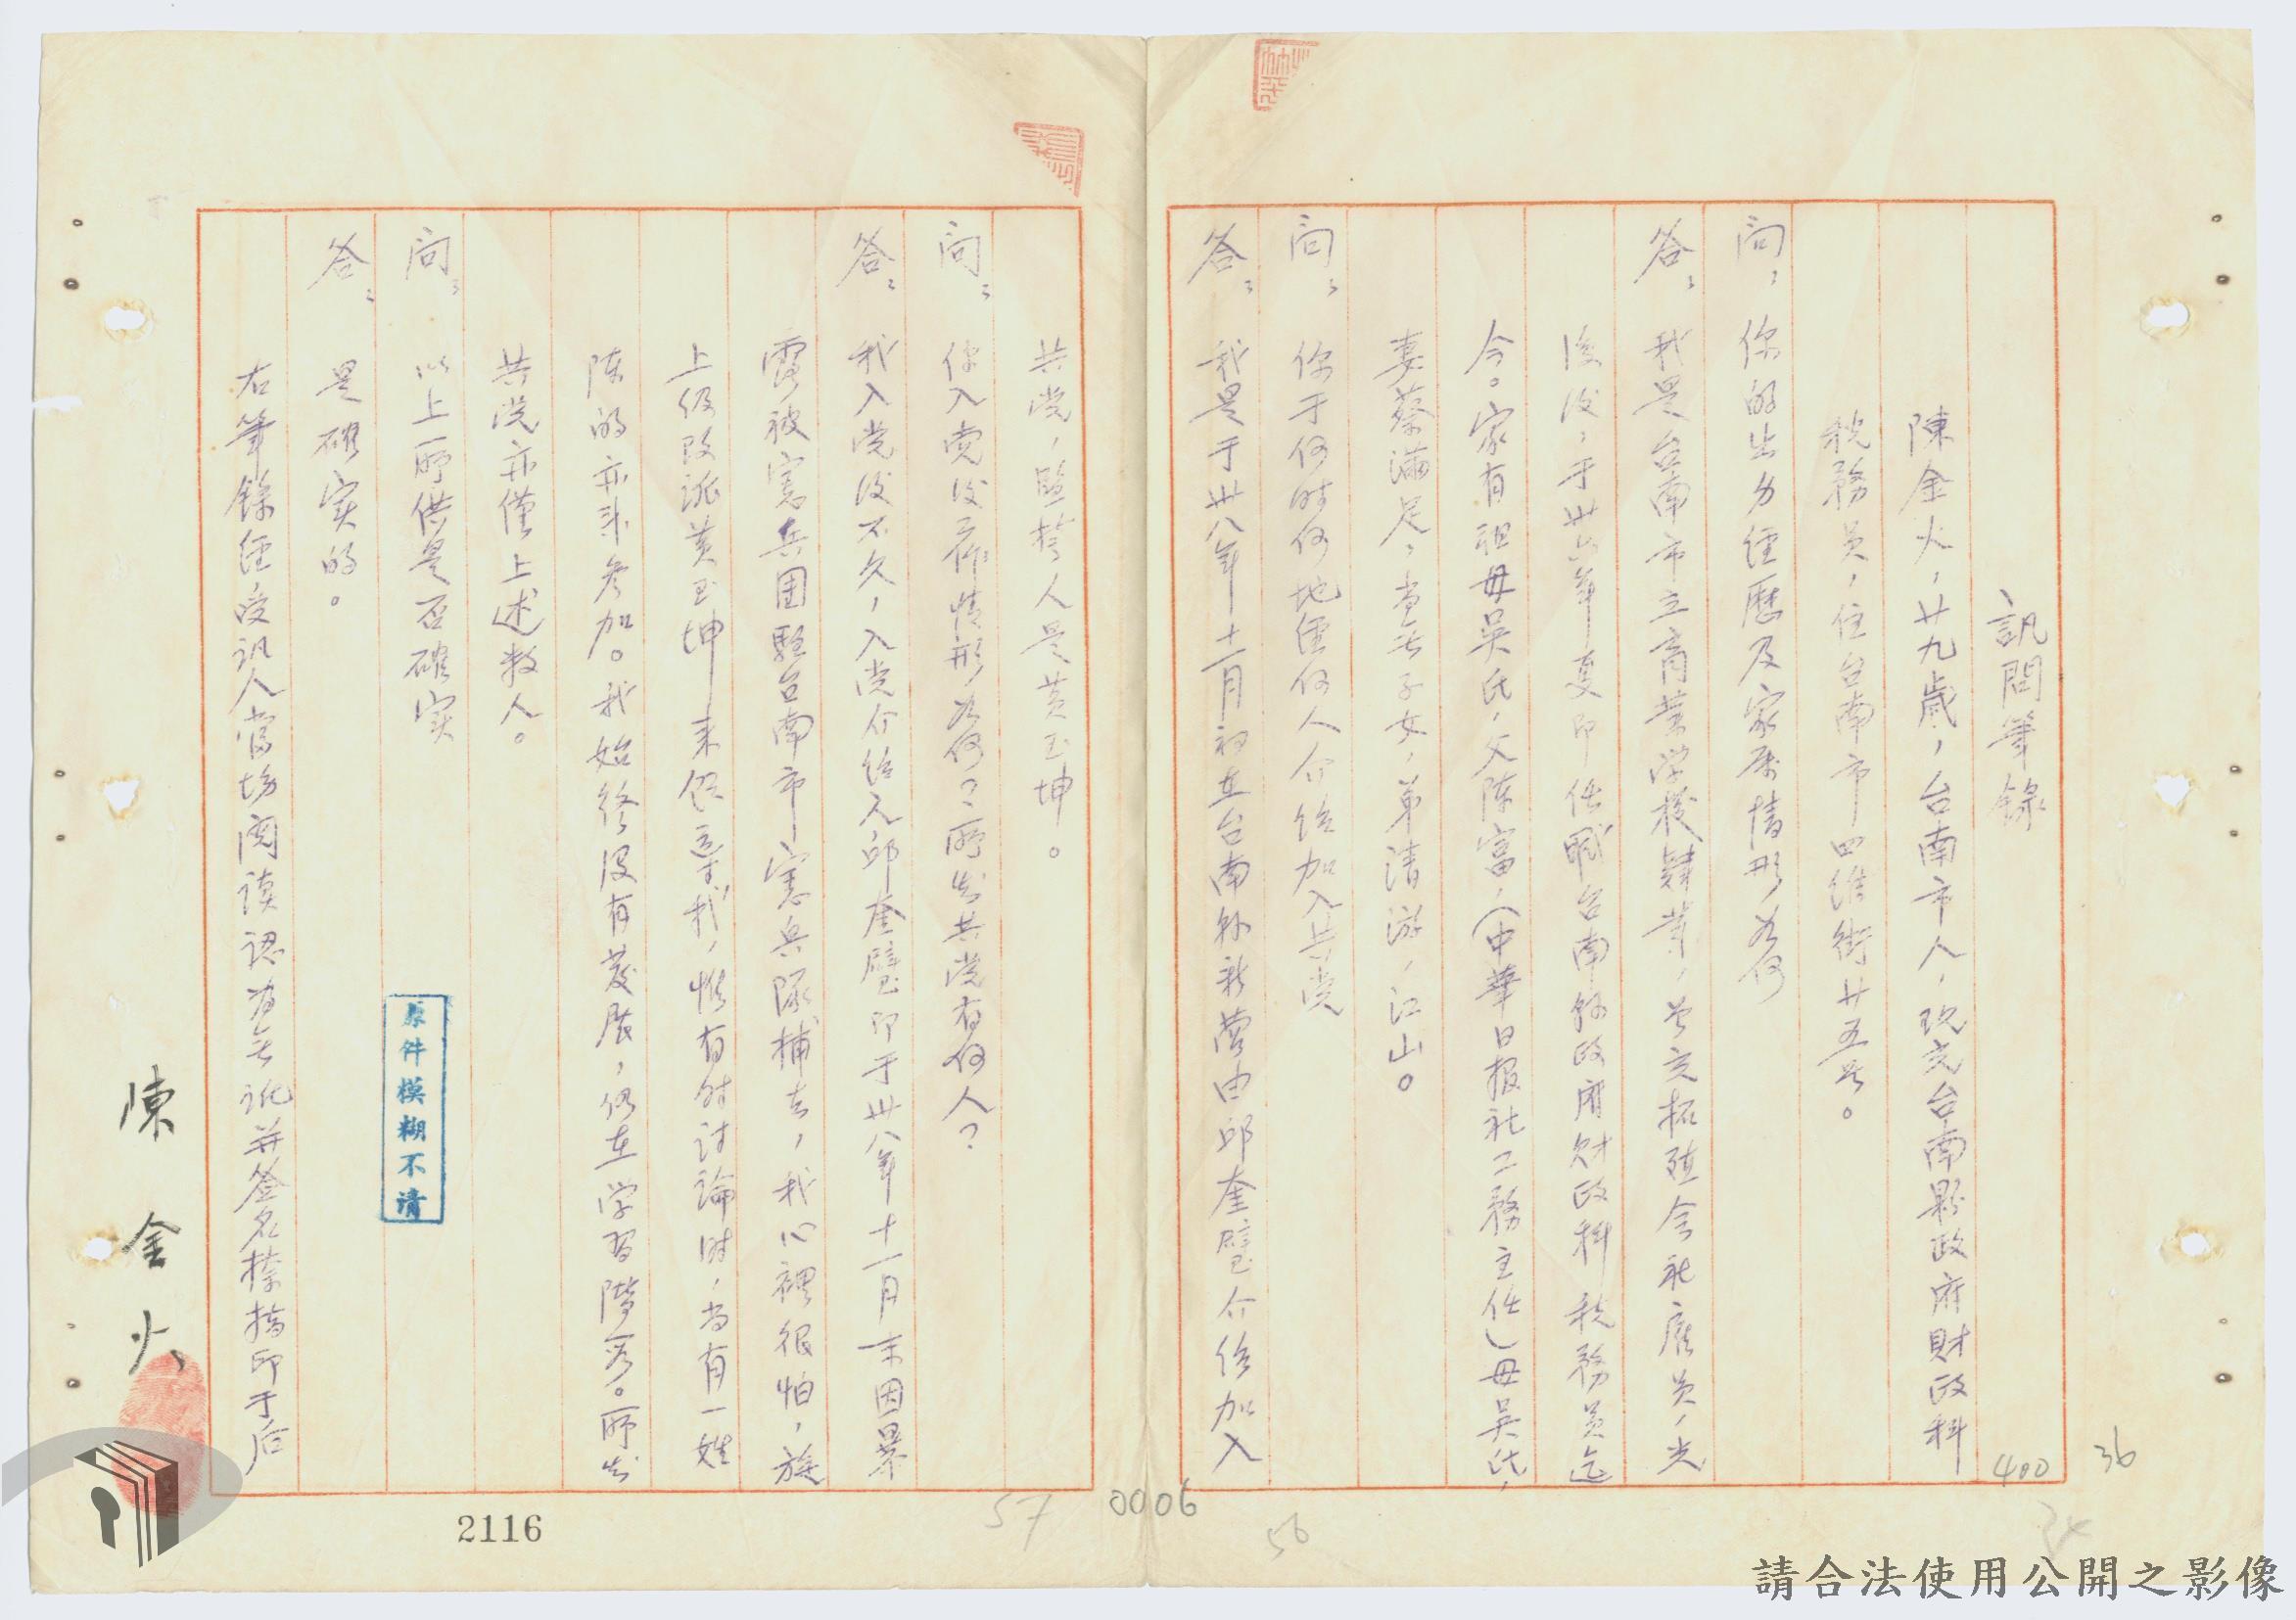 訊問筆錄
陳金火，廿九歲，台南市人，現充台南縣政府財政科
稅務員，住台南市四維街廿五号。
問：你的出身經歷及家属情形为何
答：我是台南市立商業学校肄業，曾充拓殖会社雇员，光
復後，于卅六年夏即任職台南縣政府財政科税務员迄
今。家有祖母吳氏，父陈富，（中華日报社工務主任）母吳氏，
妻蔡滿足，尚无子女，弟清游，江山。
問：你于何时何地经何人介绍加入共党
答：我是于卅八年十一月初在台南縣新营由邱奎璧介绍加入
共党，監誓人是黄玉坤。
問：你入党後工作情形为何？所知共党有何人？
答：我入党後不久，入党介绍人邱奎璧即于卅八年十一月末因暴
露被憲兵团駐台南市憲兵隊捕去，我心裡很怕，旋
上级改派黄玉坤来领导我，惟有时討論时，尚有一姓
陈的亦来参加。我始終沒有发展，仍在学習階段。所知
共党亦僅上述数人。
問：以上所供是否確实
答：是確实的。
右筆錄经受訊人當場閱讀認为无訛并签名捺指印于后
陳金火
原件模糊不清
2116
57
0006
56
400
36
34
請合法使用公開之影像